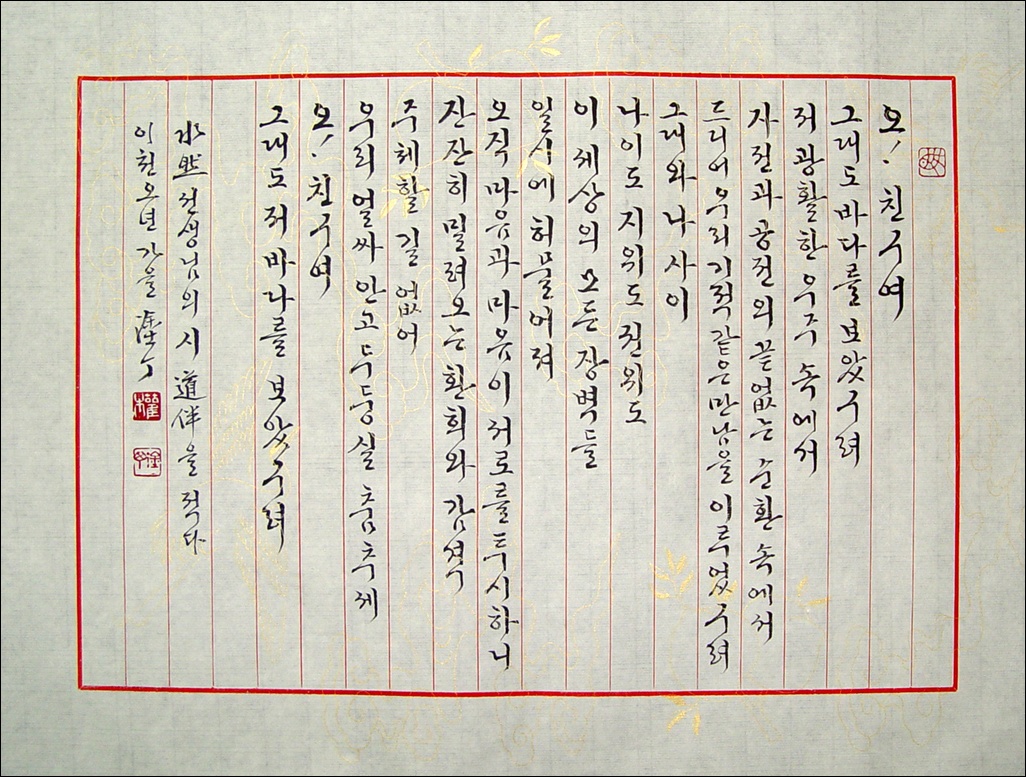 오! 친구여
그대도 바다를 보았구려
저 광활한 우주 속에서
자전과 공전의 끝없는 순환 속에서
드디어 우리 기적같은 만남을 이루었구려
그대와 나 사이
나이도 지위도 권위도
이 세상의 모든 장벽들
일시에 허물어져
오직 마음과 마음이 서로를 투시하니
잔잔히 밀려오는 환희와 감격
주체할 길 없어
우리 얼싸 안고 두둥실 춤추세
오! 친구여
그대도 저 바다를 보았구려
선생님의 시 道伴을 적다
이천오년 가을